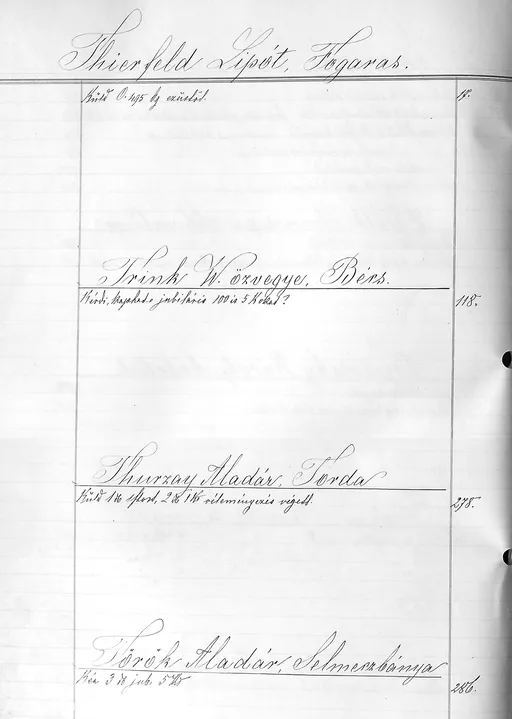 Thierfeld Lipót, Fogaras.
Küld 0.495 kg ezüstöt. 17.
Trink W. özvegye, Bécs.
Kérdi, kaphat-e jubiláris 100 és 5 Koást? 118.
Thurzay Aladár, Torda
Küld 1 db 2 db 1 Kr véleményezés végett. 278.
Török Aladár, Selmeczbánya
Kér 3 db jub. 5 Kr 286.